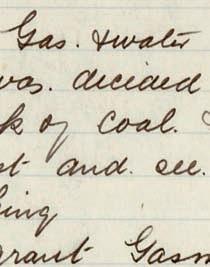 Gas. & water
was. decided
k of coal.
st and. see.
hing
grant Gasm